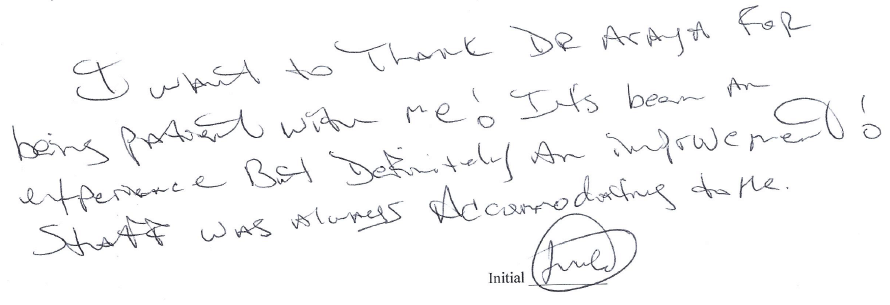 I want to Thank DR Araya FOR
being patient with me! It's been An
experience But Definitely An improvement!
Staff was always Accommodating to Me.
Initial